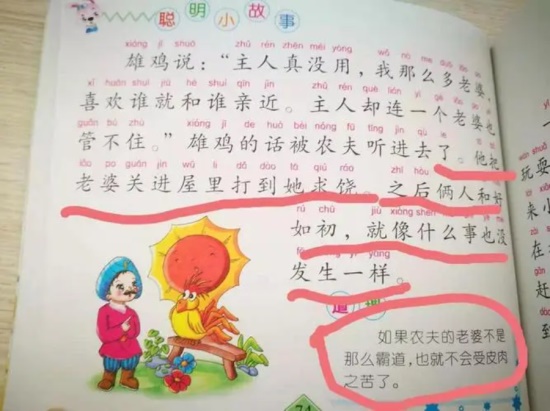 聪明小故事
xióng jī shuō zhǔ rén zhēn méi yòng wǒ nà me duō lǎo pó
雄鸡说：“主人真没用，我那么多老婆，
xǐ huān shuí jiù hé shuí qīn jìn zhǔ rén què lián yí gè lǎo pó yě
喜欢谁就和谁亲近。主人却连一个老婆也
guǎn bú zhù xióng jī de huà bèi nóng fū tīng jìn qù le
管不住。”雄鸡的话被农夫听进去了。他把
lǎo pó guān jìn wū lǐ dǎ dào tā qiú ráo zhī hòu
老婆关进屋里打到她求饶。之后俩人和好
rú chū jiù xiàng shén
如初，就像什么事也没
yí yàng
发生一样。
道理
如果农夫的老婆不是
那么霸道，也就不会受皮肉
之苦了。
74
玩耍
来小
在
赶